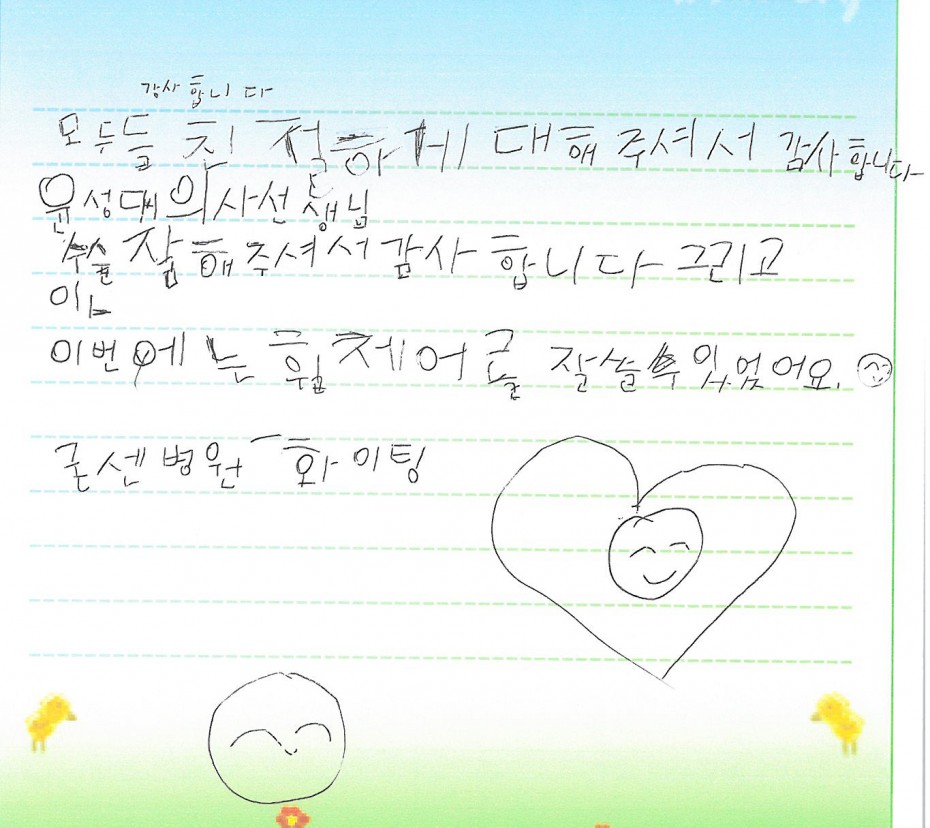 감사합니다
모두들 친적하게 대해 주셔서 감사합니다
윤성대의사선생님
수술 잘 해주셔서 감사합니다 그리고
이번에는 휠체어를 잘 쓸 수 있었어요.
굳센병원 화이팅